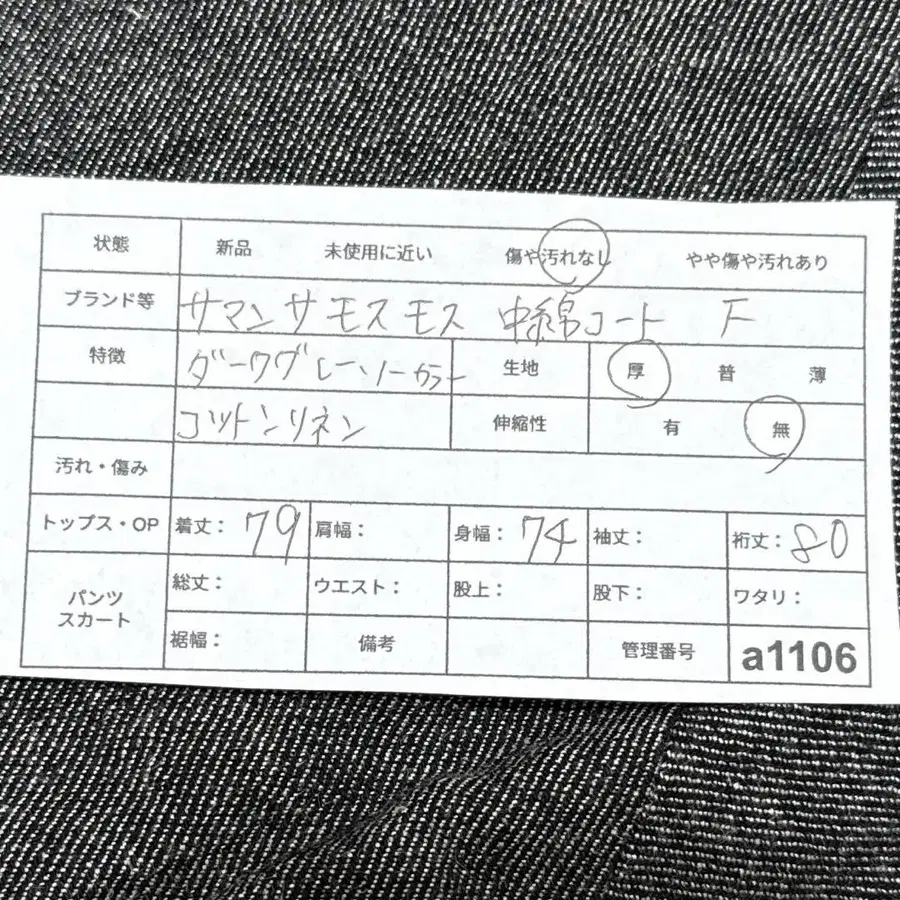 状態 新品 未使用に近い 傷や汚れなし やや傷や汚れあり
ブランド等 サマンサモスモス 中綿コート F
特徴 ダークグレーノーカラー 生地 厚 普 薄
コットンリネン 伸縮性 有 無
汚れ・傷み
トップス・OP 着丈：79 肩幅： 身幅：74 袖丈： 裄丈：80
パンツ スカート 総丈： ウエスト： 股上： 股下： ワタリ：
裾幅： 備考 管理番号 a1106